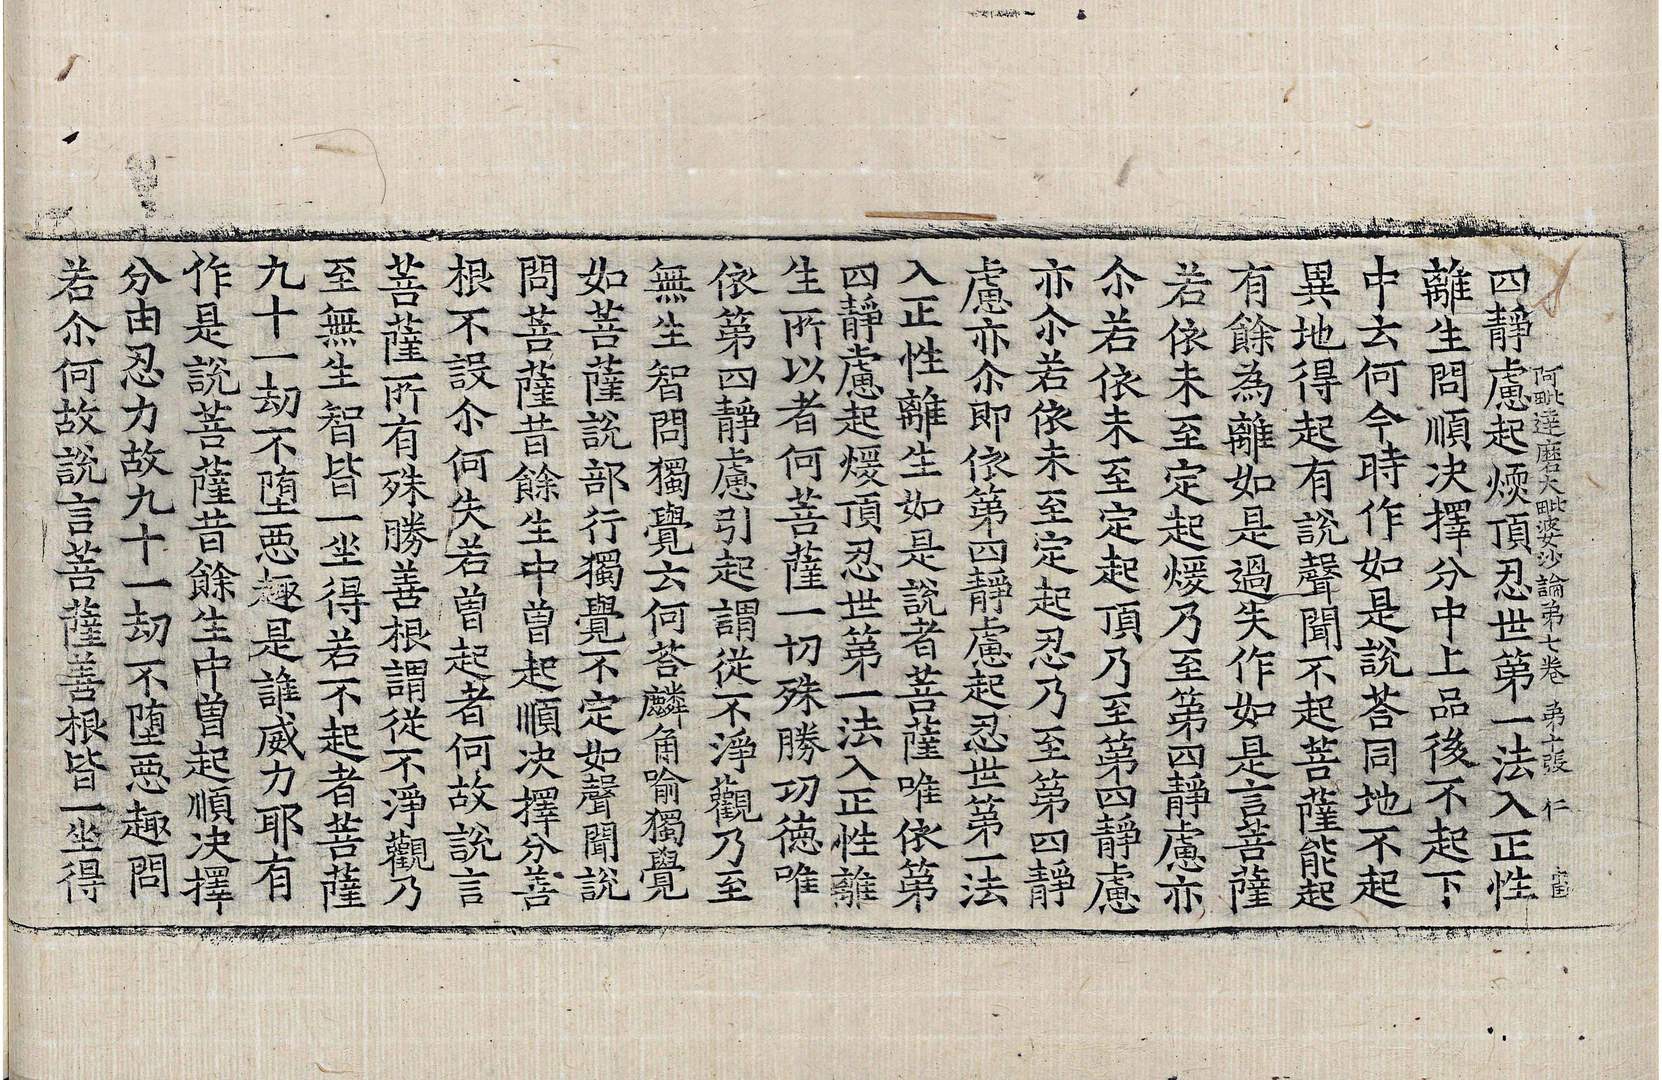 阿毗達磨大毗婆沙論弟七卷 弟十張 仁
四靜慮起煗頂忍世第一法入正性
離生問順決擇分中上品後不起下
中去何今時作如是說荅同地不起
異地得起有說聲聞不起菩薩能起
有餘為離如是過失作如是言菩薩
若依未至定起煖乃至第四靜慮亦
尒若依未至定起頂乃至第四靜慮
亦尒若依未至定起忍乃至第四靜
慮亦尒即依第四靜慮起忍世第一法
入正性離生如是說者菩薩唯依第
四靜慮起煖頂忍世第一法入正性離
生所以者何菩薩一切殊勝功徳唯
依第四靜慮引起謂從不淨觀乃至
無生智問獨覺云何荅麟角喻獨覺
如菩薩說部行獨覺不定如聲聞說
問菩薩昔餘生中曾起順決擇分善
根不設尒何失若曾起者何故說言
菩薩所有殊勝善根謂從不淨觀乃
至無生智皆一坐得若不起者菩薩
九十一劫不堕惡趣是誰威力耶有
作是說菩薩昔餘生中曾起順決擇
分由忍力故九十一劫不堕惡趣問
若尒何故說言菩薩善根皆一坐得